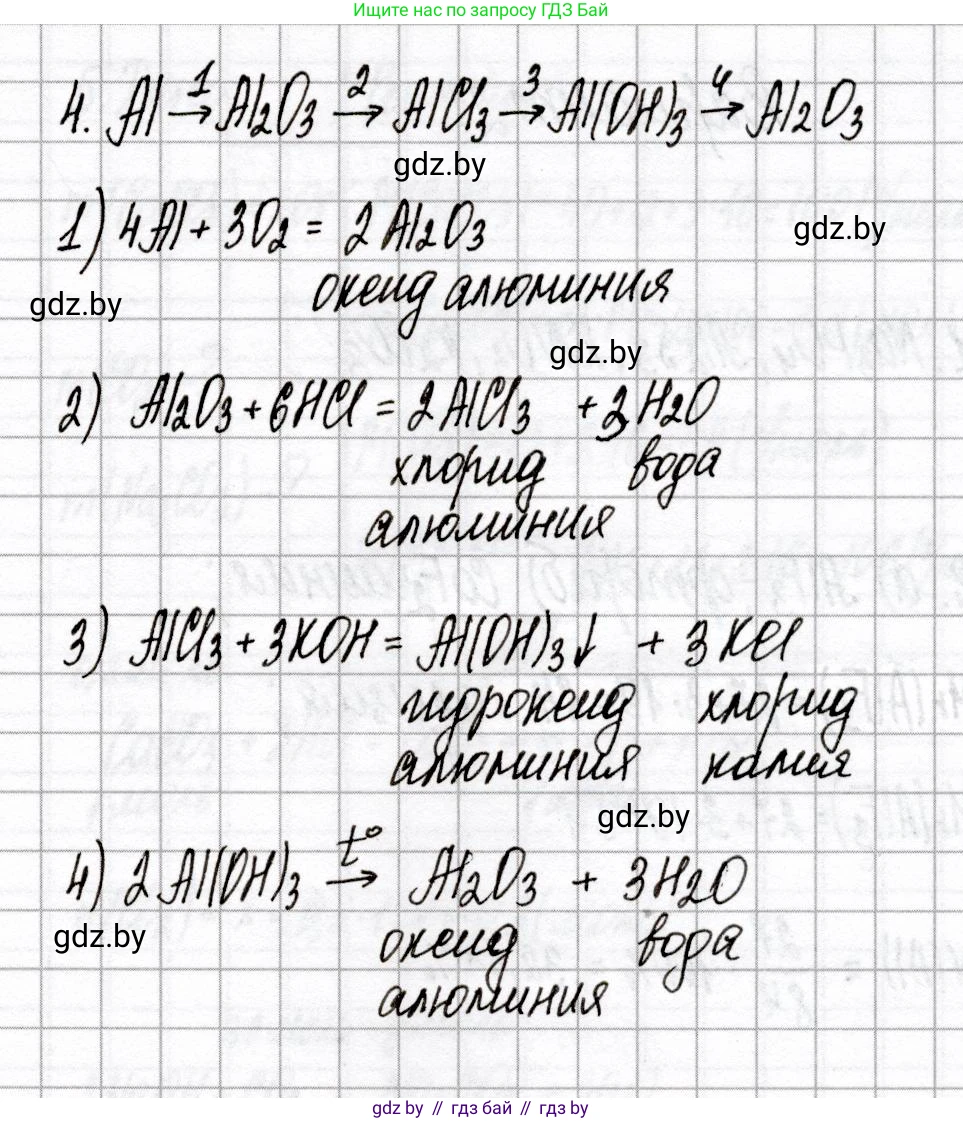 Ищите нас по запросу ГДЗ Бай
4. Al →1 Al₂O₃ →2 AlCl₃ →3 Al(OH)₃ →4 Al₂O₃
gdz.by
1) 4Al + 3O₂ = 2Al₂O₃
gdz.by
оксид алюминия
gdz.by
gdz.by
2) Al₂O₃ + 6HCl = 2AlCl₃ + 3H₂O
хлорид вода
алюминия
3) AlCl₃ + 3KOH = Al(OH)₃↓ + 3KCl
гидроксид хлорид
алюминия калия
gdz.by
4) 2Al(OH)₃ →t° Al₂O₃ + 3H₂O
gdz.by
оксид вода
алюминия
gdz.by // гдз бай // гдз by